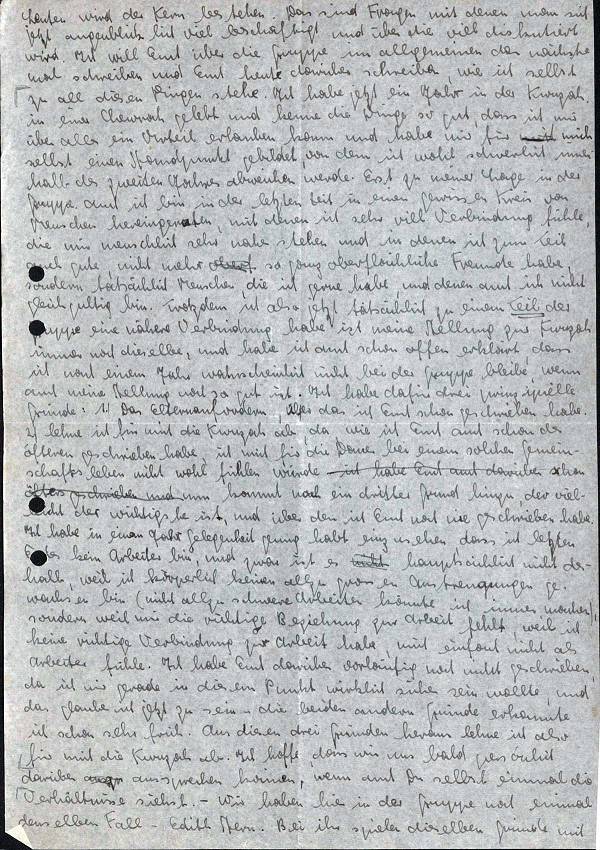 Leuten wird der Kern bestehen. Das sind Fragen mit denen man sich
jetzt augenblicklich viel beschäftigt und über die viel diskutiert
wird. Ich will Euch über die Gruppe im allgemeinen das nächste
mal schreiben und Euch heute darüber schreiben, wie ich selbst
zu all diesen Dingen stehe. Ich habe jetzt ein Jahr in der Kwuzah,
in einer Chewrah gelebt und kenne die Dinge so gut, dass ich mir
über alles ein Urteil erlauben kann und habe mir für mich
selbst einen Standpunkt gebildet, von dem ich wohl schwerlich inner-
halb des zweiten Jahres abweichen werde. Erst zu meiner Lage in der
Gruppe. Auch ich bin in der letzten Zeit in einen gewissen Kreis von
Menschen hereingeraten, mit denen ich sehr viel Verbindung fühle,
die mir menschlich sehr nahe stehen und in denen ich zum Teil
auch gute, nicht mehr so ganz oberflächliche Freunde habe,
sondern tatsächlich Menschen, die ich gerne habe, und denen auch ich nicht
gleichgültig bin. Trotzdem ich also jetzt tatsächlich zu einem Teil der
Gruppe eine nähere Verbindung habe ist meine Stellung zur Kwuzah
immer noch dieselbe, und habe ich auch schon offen erklärt, dass
ich nach einem Jahr wahrscheinlich nicht bei der Gruppe bleibe, wenn
auch meine Stellung noch so gut ist. Ich habe dafür drei prinzipielle
Gründe: 1) Das Elternanfordern. Über das ich Euch schon geschrieben habe.
2) lehne ich für mich die Kwuzah ab, da wie ich Euch auch schon des
öfteren geschrieben habe, ich mich für die Dauer bei einem solchen Gemein-
schaftsleben nicht wohl fühlen würde ich habe Euch auch darüber schon
öfters geschrieben und nun kommt noch ein dritter Grund hinzu, der viel-
leicht der wichtigste ist, und über den ich Euch noch nie geschrieben habe.
Ich habe in einem Jahr Gelegenheit genug gehabt einzusehen dass ich letzten
Endes kein Arbeiter bin, und zwar ist es hauptsächlich nicht des-
halb, weil ich körperlich keinen allzu grossen Anstrengungen ge-
wachsen bin (nicht allzu schwere Arbeiten könnte ich immer machen),
sondern weil mir die richtige Beziehung zur Arbeit fehlt, weil ich
keine richtige Verbindung zur Arbeit habe, mich einfach nicht als
Arbeiter fühle. Ich habe Euch darüber vorläufig noch nicht geschrieben,
da ich mir gerade in diesem Punkt wirklich sicher sein wollte, und
das glaube ich jetzt zu sein – die beiden andern Gründe erkannte
ich schon sehr früh. Aus diesen drei Gründen heraus lehne ich also
für mich die Kwuzah ab. Ich hoffe, dass wir uns bald persönlich
darüber aussprechen können, wenn auch Du selbst einmal die
Verhältnisse siehst. – Wir haben hier in der Gruppe noch einmal
denselben Fall – Edith Stern. Bei ihr spielen dieselben Gründe mit